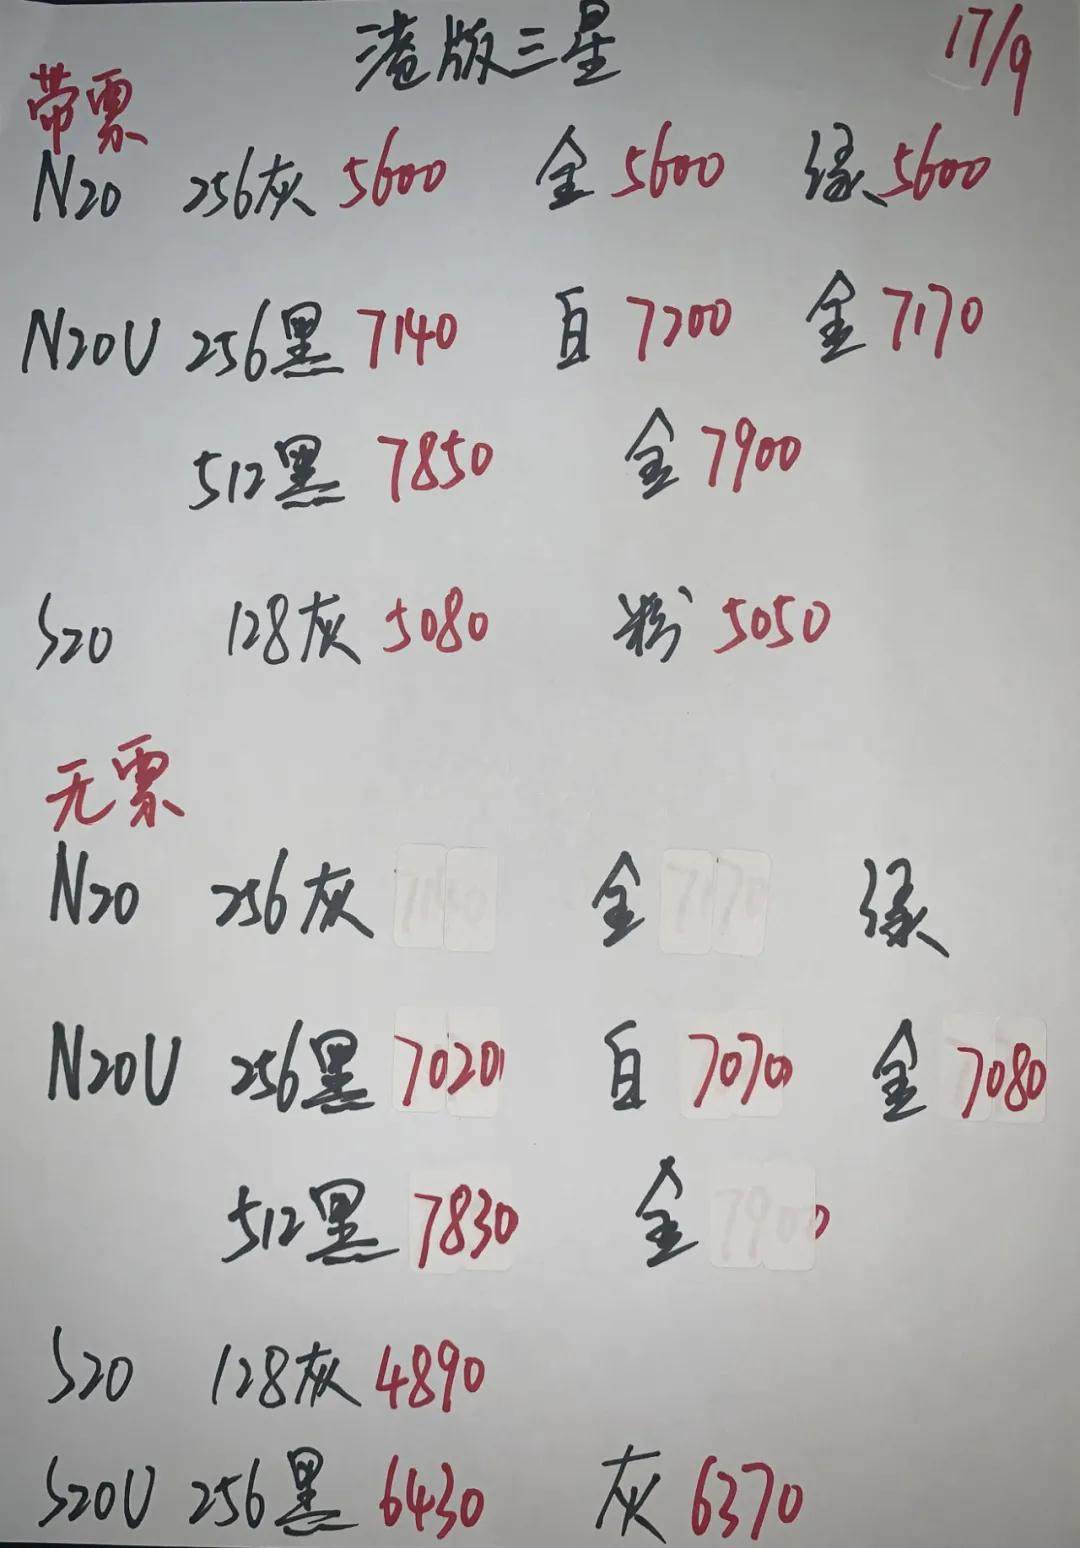 港版三星 17/9
带票
N20 256灰 5600 金 5600 绿 5600
N20U 256黑 7140 白 7200 金 7170
512黑 7850 金 7900
S20 128灰 5080 粉 5050
无票
N20 256灰 金 绿
N20U 256黑 7020 白 7070 金 7080
512黑 7830 金
S20 128灰 4890
S20U 256黑 6430 灰 6370